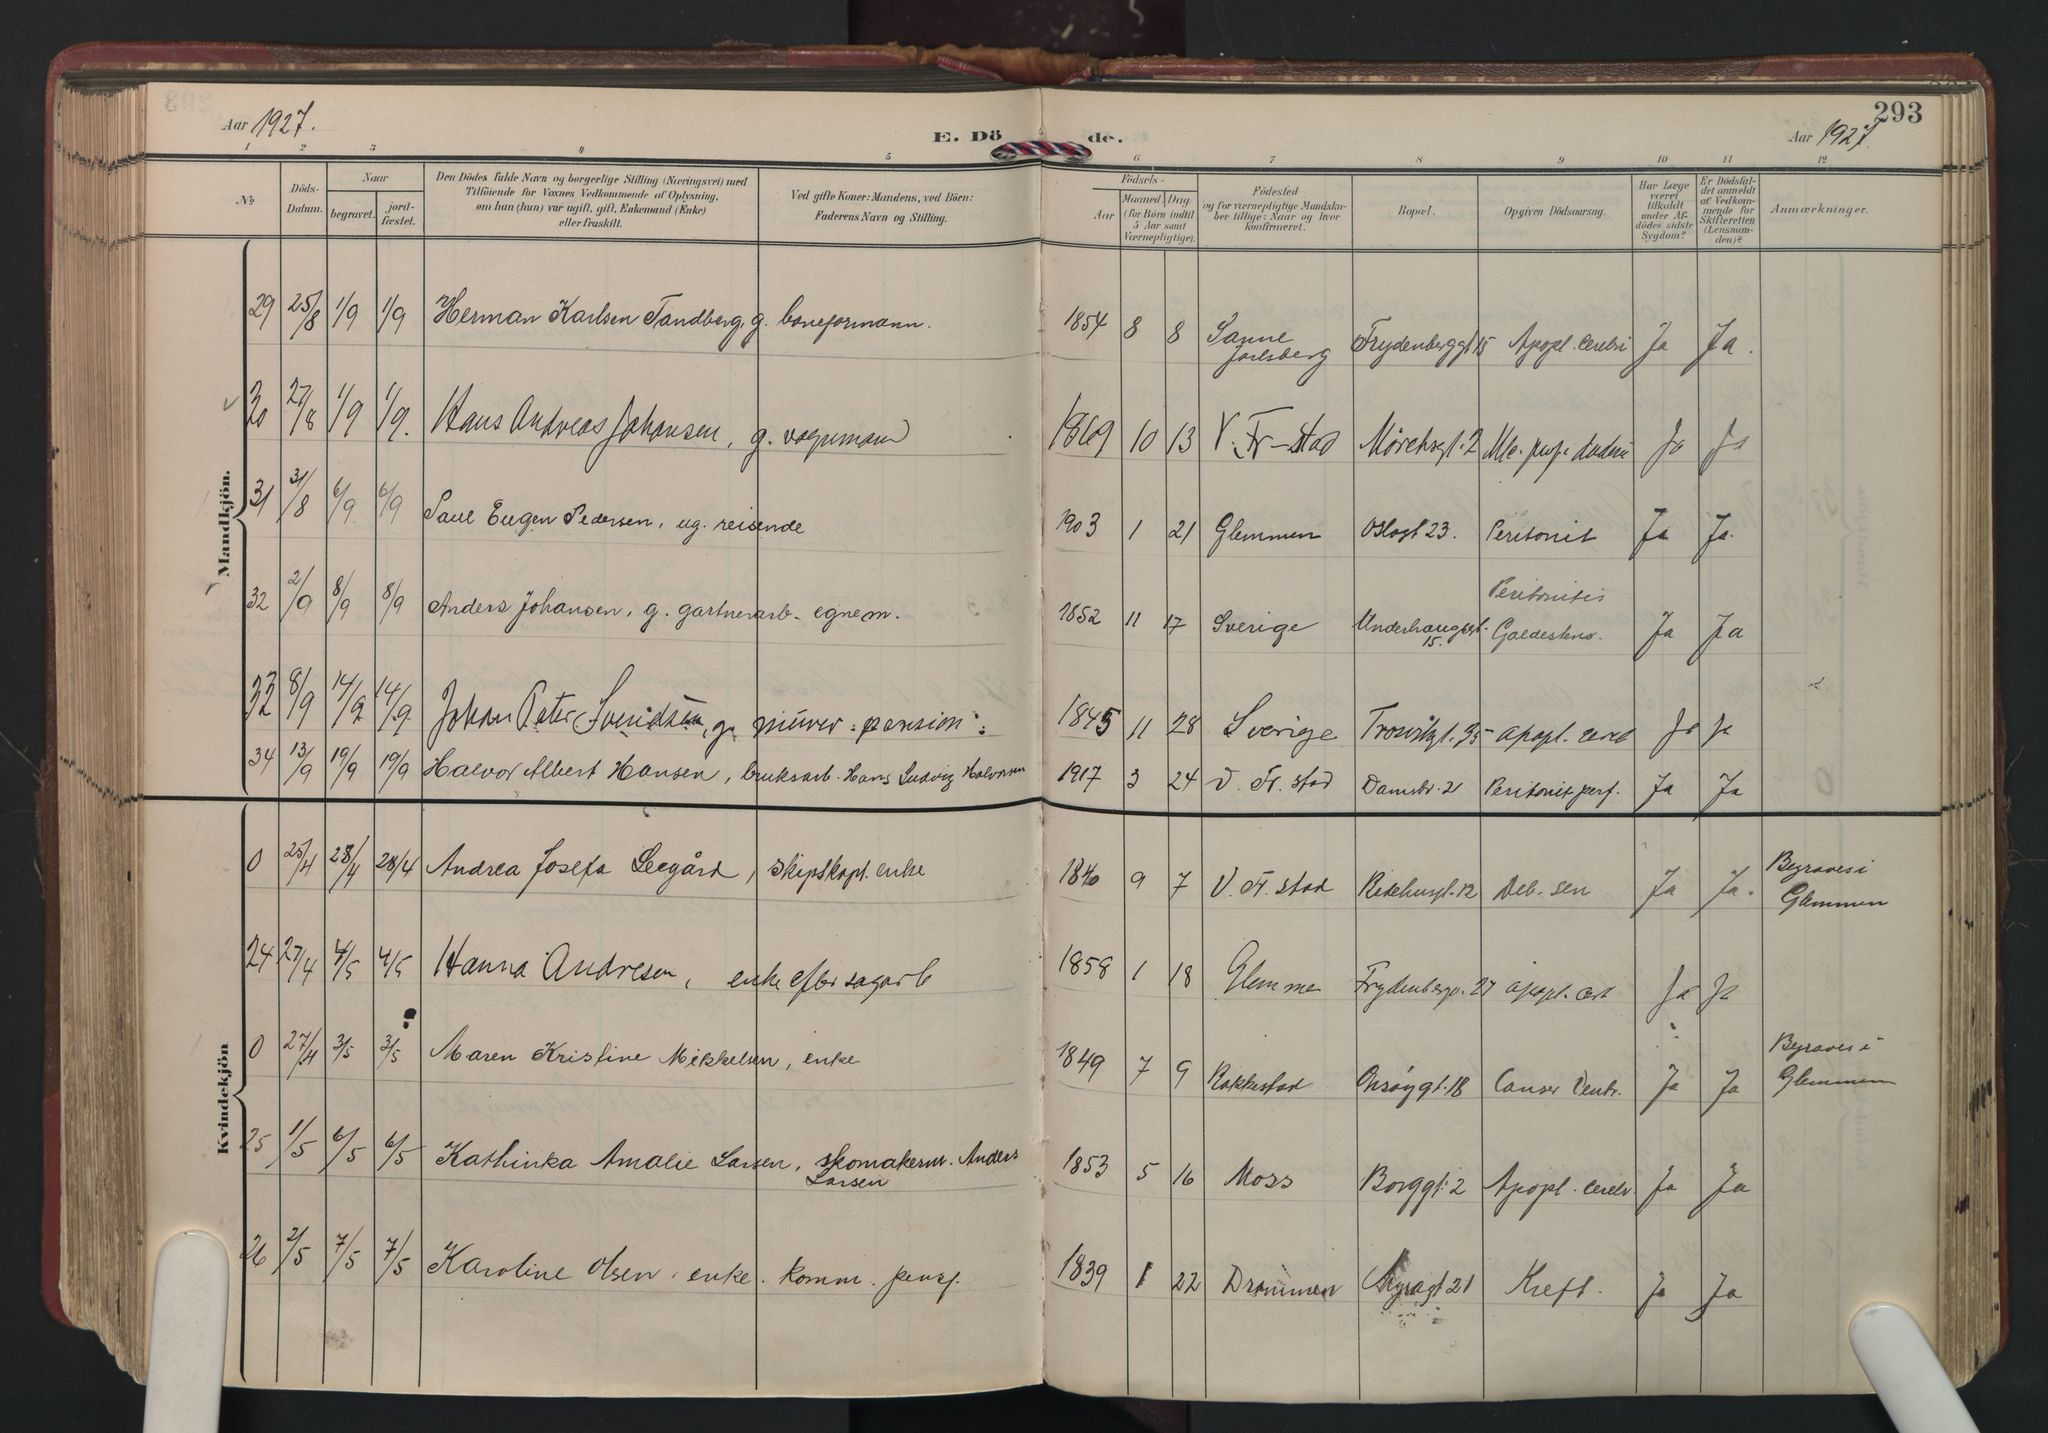 293
Aar 1927.
E. Dö
de.
Aar 1927.
1 2 3 4 5 6 7 8 9 10 11 12
No
Döds-Datum.
Naar
begravet.
jord-fæstet.
Den Dödes fulde Navn og borgerlige Stilling (Næringsvei) med
Tilföiende for Voxnes Vedkommende af Oplysning,
om han (hun) var ugift, gift, Enkemand (Enke)
eller fraskilt.
Ved gifte Koner: Mandens, ved Börn:
Faderens Navn og Stilling.
Födsels-
Aar
Maaned
Dag
(for Börn indtil
5 Aar samt
Værnepligtige).
Födested
og for værnepligtige Mandska-
ber tillige: Naar og hvor
konfirmeret.
Bopæl.
Opgiven Dödsaarsag.
Har Læge
været
tilkaldt
under Af-
dödes sidste
Sygdom?
Er Dödsfal-
det anmeldt
af Vedkom-
mende for
Skifteretten
(Lensman-
den)?
Anmærkninger.
Mandkjön.
29 25/8 1/9 1/9 Herman Karlsen Tandberg, g. 1854 8 8 Sanne Jarlsberg Frydenberggt 15 Apopl. cerebri Ja Ja.
30 27/8 1/9 1/9. Hans Andreas Johansen, g. vognmand 1869 10 13 V. Fr-stad 2 Ja Ja
31 31/8 6/9 6/9 Paul Eugen Pedersen, ug. reisende 1903 1 21 Glemmen Oslogt 23. Peritonit Ja Ja.
32 2/9 8/9 8/9 Anders Johansen, g. gartnerarb. egnem. 1852 11 17 Sverige Underhaugsgt. 15. Peritonitis Galdestens. Ja Ja
33 8/9 14/9 14/9 Johan Peter Svendsen, g. murer : pension : 1845 11 28 Sverige Trosvikgt. 35 apopl. cereb Ja Ja
34 13/9 19/9 19/9 Halvor Albert Hansen, bruksarb. Hans Ludvig Halvorsen 1917 3 24 V. Fr. stad Damstr. 21 Peritonit perf. Ja Ja
Kvindekjön
0 25/4 28/4 28/4 Andrea Josefa Leegård, skipskapt. enke 1840 9 7 V. Fr. stad 12 Deb. sen Ja Ja. Begraves i Glemmen
24 27/4 4/5 4/5 Hanna Andresen, enke efter sagarb 1858 1 18 Glemme Frydenberg. 27 apopl. cereb Ja Ja
0 27/4 3/5 3/5 Maren Kristine Mikkelsen, enke 1849 7 9 Rakkestad Onsøygt. 18 Canser Ventr. Ja Ja Begraves i Glemmen
25 1/5 6/5 6/5 Kathinka Amalie Larsen, skomakerm. Anders Larsen 1853 5 16 Moss Borggt. 2 Apopl. cerebr. Ja Ja
26 2/5 7/5 7/5 Karoline Olsen. enke. komm. pensj. 1839 1 22 Drammen 21 Kreft. Ja Ja